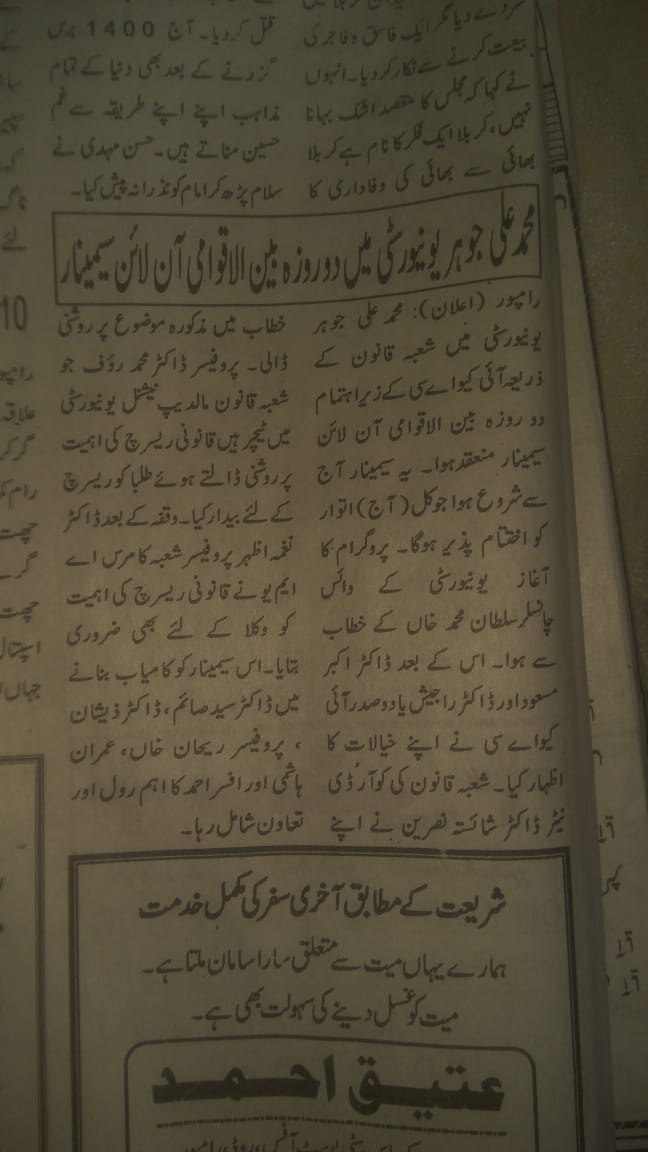 بیعت کرنے سے انکار کر دیا۔ انہوں
نے کہا کہ مجلس کا مقصد اشک بہانا
نہیں، کربلا ایک فکر کا نام ہے کربلا
بھائی سے بھائی کی وفاداری کا
قتل کر دیا۔ آج 1400 برس
گزرنے کے بعد بھی دنیا کے تمام
مذاہب اپنے اپنے طریقہ سے غم
حسین مناتے ہیں۔ حسن مہدی نے
سلام پڑھ کر امام کو نذرانہ پیش کیا۔
محمد علی جوہر یونیورسٹی میں دو روزہ بین الاقوامی آن لائن سیمینار
رامپور (اعلان): محمد علی جوہر
یونیورسٹی میں شعبہ قانون کے
ذریعہ آئی کیو اے سی کے زیر اہتمام
دو روزہ بین الاقوامی آن لائن
سیمینار منعقد ہوا۔ یہ سیمینار آج
سے شروع ہوا جو کل (آج) اتوار
کو اختتام پذیر ہوگا۔ پروگرام کا
آغاز یونیورسٹی کے وائس
چانسلر سلطان محمد خاں کے خطاب
سے ہوا۔ اس کے بعد ڈاکٹر اکبر
مسعود اور ڈاکٹر راجیش یادو صدر آئی
کیو اے سی نے اپنے خیالات کا
اظہار کیا۔ شعبہ قانون کی کوآرڈی
نیٹر ڈاکٹر شائستہ نصرین نے اپنے
خطاب میں مذکورہ موضوع پر روشنی
ڈالی۔ پروفیسر ڈاکٹر محمد رؤف جو
شعبہ قانون مالدیپ نیشنل یونیورسٹی
میں ٹیچر ہیں قانونی ریسرچ کی اہمیت
پر روشنی ڈالتے ہوئے طلبا کو ریسرچ
کے لئے بیدار کیا۔ وقفہ کے بعد ڈاکٹر
نغمہ اظہر پروفیسر شعبہ کامرس اے
ایم یو نے قانونی ریسرچ کی اہمیت
کو وکلا کے لئے بھی ضروری
بتایا۔ اس سیمینار کو کامیاب بنانے
میں ڈاکٹر سید صائم، ڈاکٹر ذیشان
، پروفیسر ریحان خاں، عمران
ہاشمی اور افسر احمد کا اہم رول اور
تعاون شامل رہا۔
شریعت کے مطابق آخری سفر کی مکمل خدمت
ہمارے یہاں میت سے متعلق سارا سامان ملتا ہے۔
میت کو غسل دینے کی سہولت بھی ہے۔
عتیق احمد
10